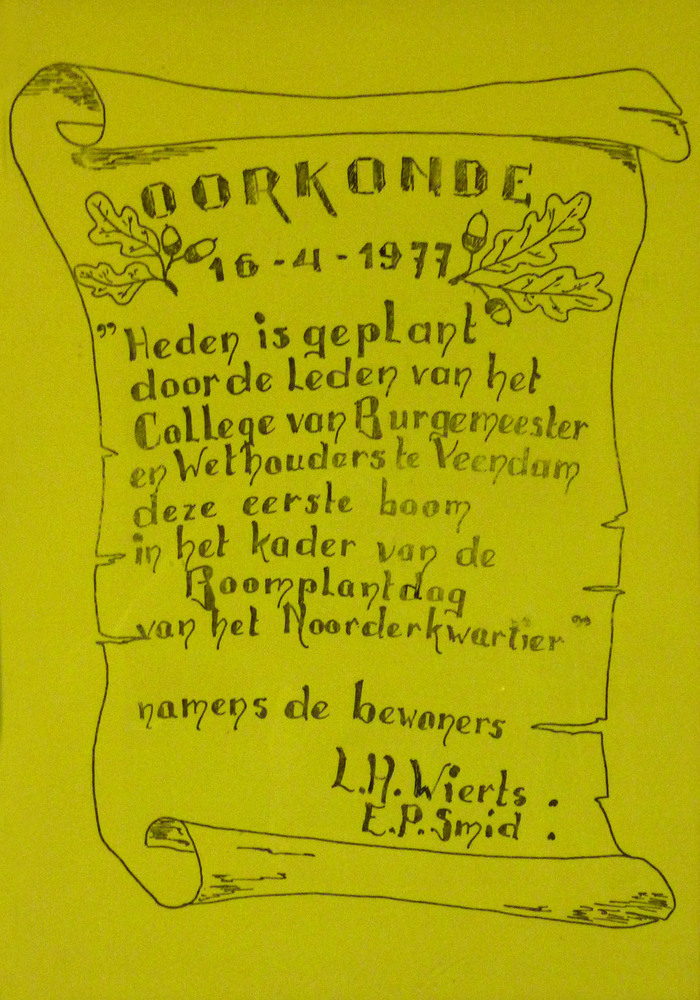 OORKONDE
16-4-1977
"Heden is geplant
door de Leden van het
College van Burgemeester
en Wethouders te Veendam
deze eerste boom
in het kader van de
Boomplantdag
van het Noorderkwartier"
namens de bewoners
L.H. Wierts.
E.P. Smid.